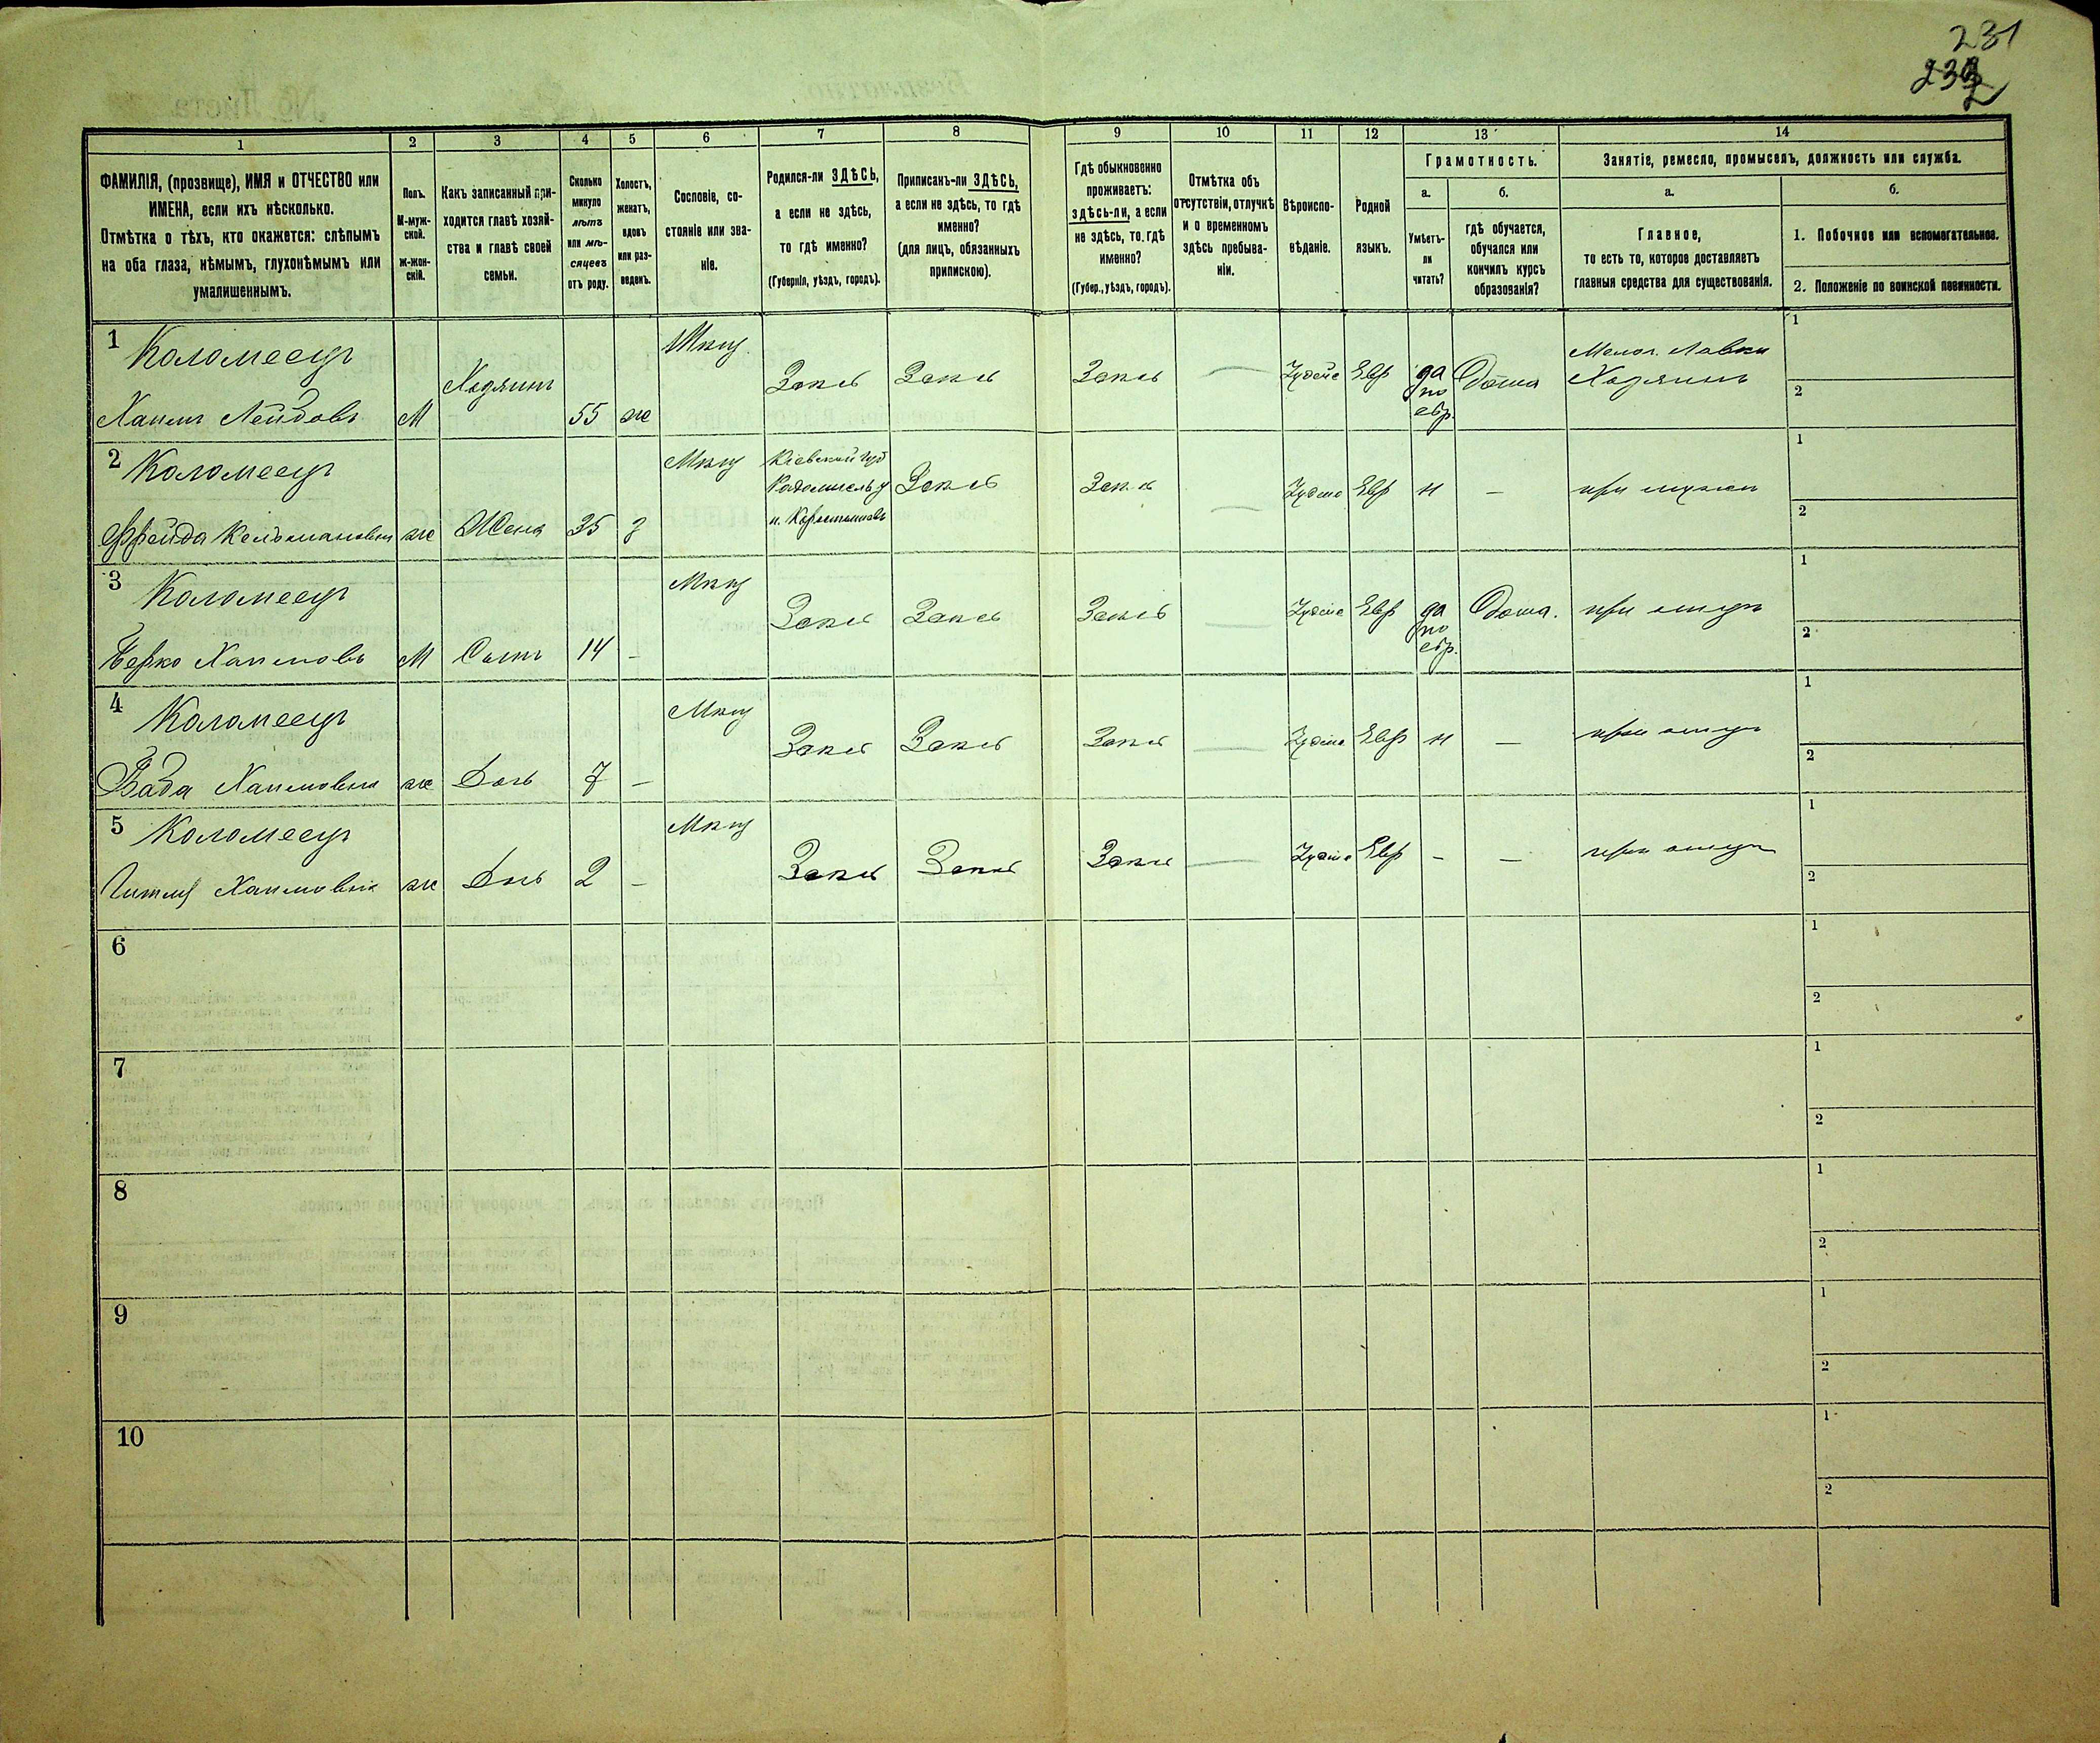 231
1 2 3 4 5 6 7 8 9 10 11 12 13 14
ФАМИЛІЯ, (прозвище), ИМЯ и ОТЧЕСТВО или
ИМЕНА, если ихъ нѣсколько.
Отмѣтка о тѣхъ, кто окажется: слѣпымъ
на оба глаза, нѣмымъ, глухонѣмымъ или
умалишеннымъ.
Полъ.
М-муж-
ской.
Ж-жен-
скій.
Какъ записанный при-
ходится главѣ хозяй-
ства и главѣ своей
семьи.
Сколько
минуло
лѣтъ
или мѣ-
сяцевъ
отъ роду.
Холостъ,
женатъ,
вдовъ
или раз-
веденъ.
Сословіе, со-
стояніе или зва-
ніе.
Родился-ли ЗДѢСЬ,
а если не здѣсь,
то гдѣ именно?
(Губернія, уѣздъ, городъ).
Приписанъ-ли ЗДѢСЬ,
а если не здѣсь, то гдѣ
именно?
(для лицъ, обязанныхъ
припискою).
Гдѣ обыкновенно
проживаетъ:
здѣсь-ли, а если
не здѣсь, то гдѣ
именно?
(Губер., уѣздъ, городъ).
Отмѣтка объ
отсутствіи, отлучкѣ
и о временномъ
здѣсь пребыва-
ніи.
Вѣроиспо-
вѣданіе.
Родной
языкъ.
Грамотность.
а.
Умѣетъ-
ли
читать?
б.
гдѣ обучается,
обучался или
кончилъ курсъ
образованія?
Занятіе, ремесло, промыселъ, должность или служба.
а.
Главное,
то есть то, которое доставляетъ
главныя средства для существованія.
б.
1. Побочное или вспомогательное.
2. Положеніе по воинской повинности.
1 Коломеецъ
Хаимъ Лейдовъ М Хозяинъ 55 ж Мѣщ Здѣсь Здѣсь Здѣсь — Іудейс Евр да по евр. Дома Мелоч. Лавки Хозяинъ
1
2
2 Коломеецъ
Фрейда Кельмановна ж Жена 35 з Мѣщ Кіевской губ Радомысль у Здѣсь Здѣсь — Іудейс Евр н — при мужѣ
1
2
3 Коломеецъ
Берко Хаимовъ М Сынъ 14 — Мѣщ Здѣсь Здѣсь Здѣсь — Іудейс Евр да по евр. Дома. при отцѣ
1
2
4 Коломеецъ
Хаимовна ж Дочь 7 — Мѣщ Здѣсь Здѣсь Здѣсь — Іудейс Евр н — при отцѣ
1
2
5 Коломеецъ
Гитля Хаимовна ж Дочь 2 — Мѣщ Здѣсь Здѣсь Здѣсь — Іудейс Евр — — при отцѣ
1
2
6
1
2
7
1
2
8
1
2
9
1
2
10
1
2